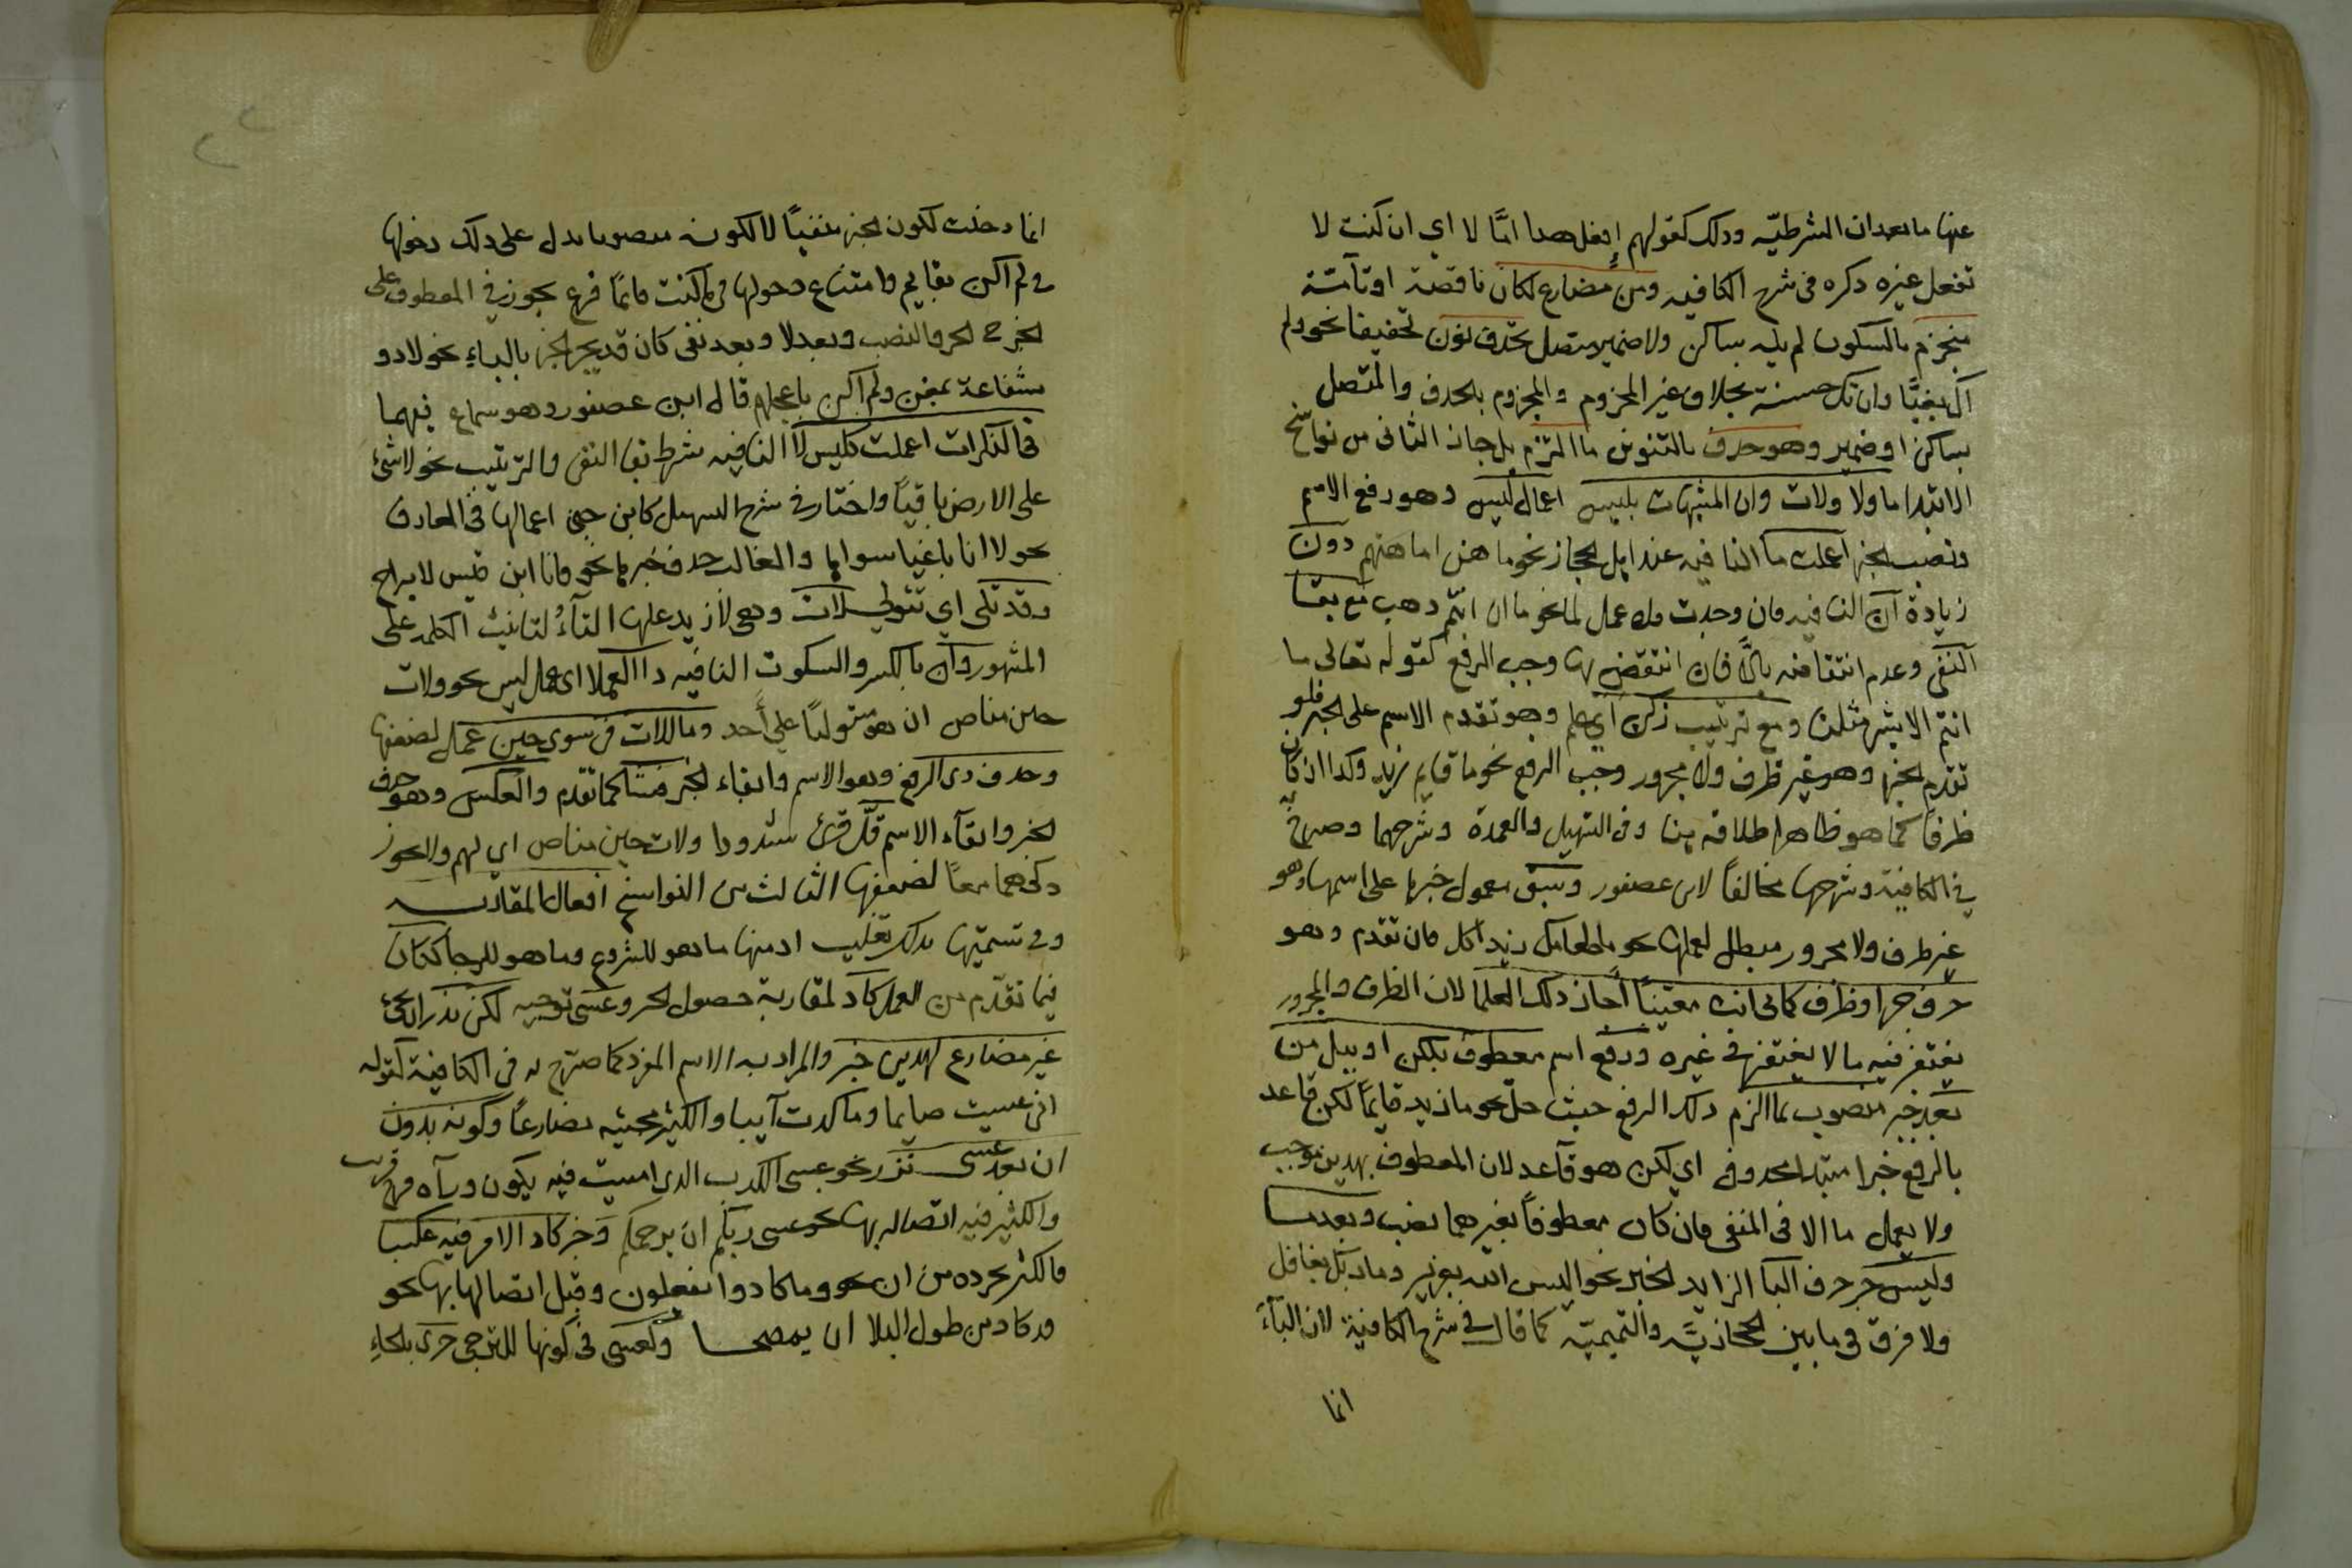 عنها ما بعد ان الشرطيّه وذلك كقولهم إفعل هذا امّا لا اي ان كنت لا
تفعل غيره ذكره في شرح الكافيه ومن مضارع لكان ناقصة او تآمّة
منجزم بالسكون لم يله ساكن ولا ضمير متصل تحذف نون تخفيفا نحو ولم
اك بغيّا وان تك حسنة بخلاف غير المجزوم والمجزوم بالحذف والمتصل
بساكن او ضمير وهو حذف بالتنوين ما التزم بل جاز الثانى من نواسخ
الابتدا ما ولا ولات وان المشبهات بليس اعمال ليس وهو رفع الاسم
ونصب الخبر اعملت ما النافيه عند اهل الحجاز نحو ما هن امهاتهم دون
زيادة ان النافيه فان وجدت فلا عمل لما نحو ما ان انتم ذهب مع بقا
النفى وعدم انتقاضه بالّا فان انتقض بها وجب الرفع كقوله تعالى ما
انتم الا بشر مثلنا ومع ترتيب زكن اي علم وهو تقدم الاسم على الخبر فلو
تقدم الخبر وهو غير ظرف ولا مجرور وجب الرفع نحو ما قايم زيد وكذا ان كان
ظرفا كما هو ظاهر اطلاقه هنا وفى التسهيل والعمدة وشرحهما وصرح به
في الكافية وشرحها مخالفاً لابن عصفور وسبق معمول خبرها على اسمها وهو
غير ظرف ولا مجرور مبطل لعملها نحو ما طعامك زيد اكل فان تقدم وهو
حرف جر او ظرف كما بى انت معنيّاً أجاز ذلك العلما لان الظرف والمجرور
يغتفر فيه ما لا يغتفر في غيره ورفع اسم معطوف بلكن او ببل من
بعد خبر منصوب بما الزم ذلك الرفع حيث حلّ نحو ما زيد قايمًا لكن قاعد
بالرفع خبرا مبتدا محذوف اي لكن هو قآعد لان المعطوف بهذين موجب
ولا يعمل ما الا فى المنفى فان كان معطوفاً بغيرهما نصب وبعد ما
وليس جر حرف البا الزايد الخبر نحو اليس الله بعزيز وما ربك بغافل
ولا فرق في ما بين الحجازيّة والتميميّه كما قال في شرح الكافية لان البآء
انما
انما دخلت لكون الخبر منفيّاً لا لكونه منصوبا يدل على ذلك دخولها
في لم اكن بقايم وامتناع دخولها في كنت قايمًا فرع يجوز في المعطوف على
الخبر ح الجر والنصب وبعد لا وبعد نفى كان قد يجر الخبر بالباء نحو لا ذو
شفاعة بمغن ولم اكن باعجلهم قال ابن عصفور وهو سماع فيهما
فى النكرات اعملت كليس لا النافيه بشرط بقا النفى والترتيب نحو لا شئ
على الارض باقيّاً واختار في شرح التسهيل كابن جنى اعمالها فى المعارف
نحو لا انا باغيا سواها والغالب حذف خبرها نحو فانا ابن قيس لا براح
وقد تلى اي تتولى لات وهى لا زيد عليها التآءُ لتانيث الكلمه على
المشهور وان بالكسر والسكون النافيه ذا العملا اى عمل ليس نحو ولات
حين مناص ان هو مستوليًا على أحد وما للات فى سوى حين عمل لضعفها
وحذف ذى الرفع وهو الاسم وابقاء الخبر فشا كما تقدم والعكس وهو حذف
الخبر وابقآء الاسم قلّ قرئ شذوذا ولات حين مناص اي لهم ولا يجوز
ذكرهما معاً لضعفها الثالث من النواسخ افعال المقاربه
وفى تسميتها بذلك تغليب اذ منها ما هو للشروع وما هو للرجا ككان
فيما تقدّم من العمل كاد لمقاربة حصول الخبر وعسى لترجيه لكن ندر ان يجئ
غير مضارع لهذين خبر والمراد به الاسم المفرد كما صرّح به فى الكافية كقوله
انى عسيت صايما وما كدت آيبا والكثير مجيئه مضارعًا وكونه بدون
ان بعد عسى نزر نحو عسى الكرب الذى امسيت فيه يكون ورآه فرج قريب
والكثير فيه اتصاله بها نحو عسى ربكم ان يرحمكم وخبر كاد الامر فيه عكسا
فالكثير تجرده من ان نحو وما كادوا يفعلون وقبل اتصالها بها نحو
قد كاد من طول البلا ان يمصحا وكعسى فى كونها للترجى حرى بالحاءِ